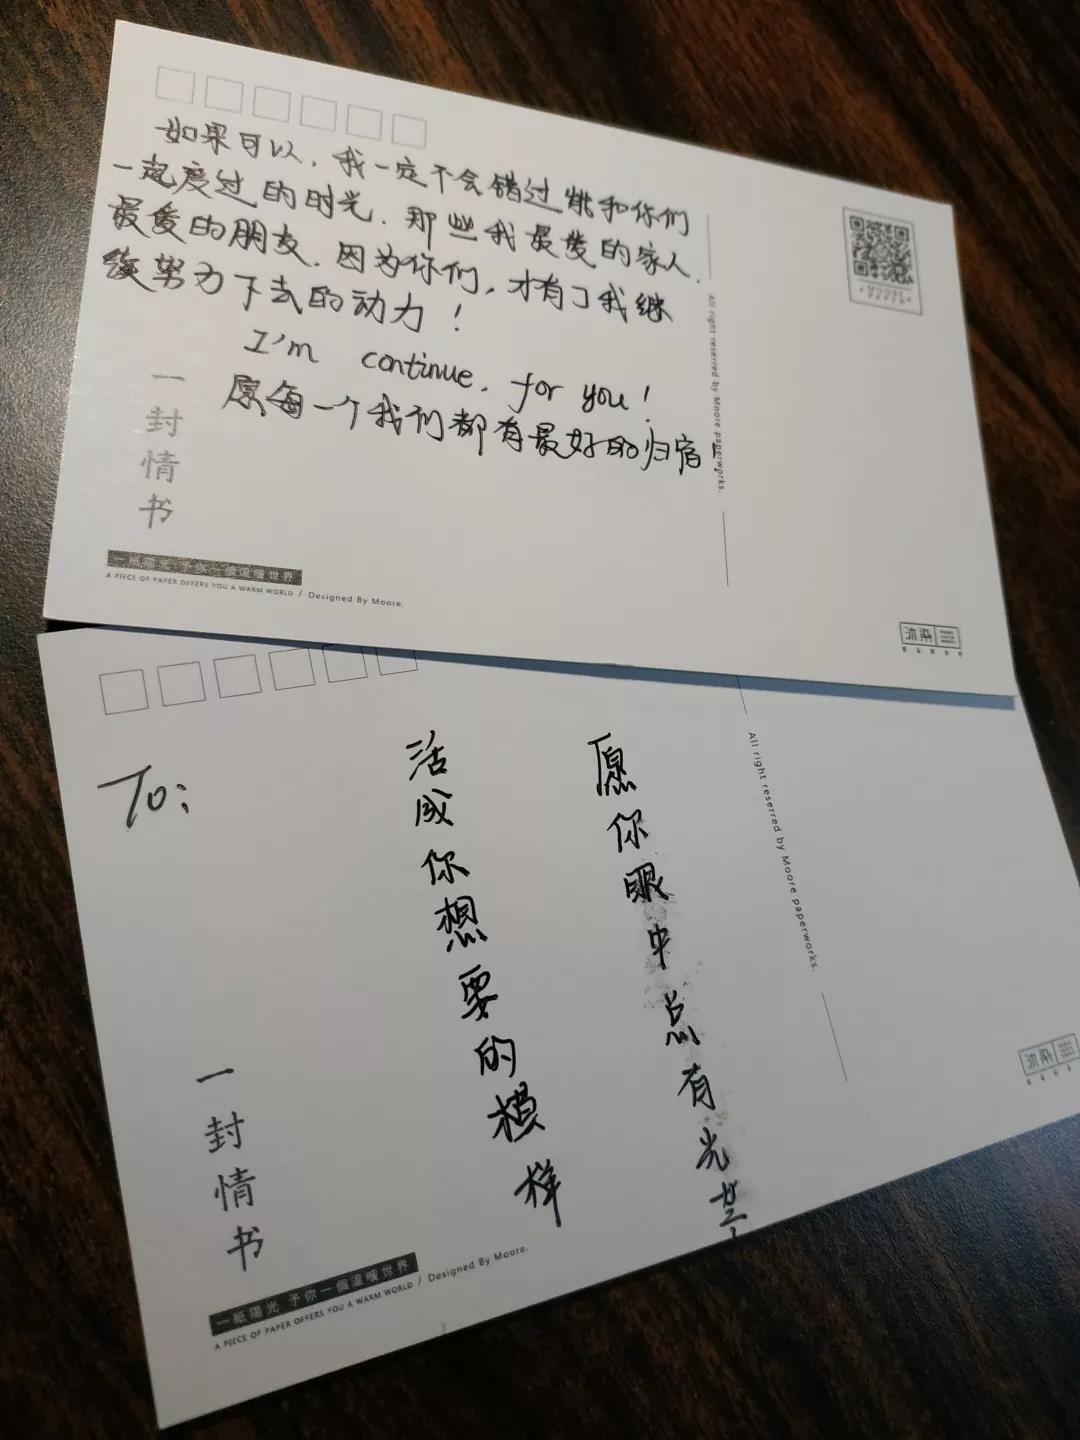 如果可以，我一定不会错过能和你们
一起度过的时光．那些我最爱的家人．
最爱的朋友．因为你们，才有了我继
续努力下去的动力！
I'm continue, for you!
愿每一个我们都有最好的归宿！
一封情书
A PIECE OF PAPER OFFERS YOU A WARM WORLD / Designed By Moore.
All right reserred by Moore paperworks.
MOORE PAPER
To:
愿你眼中点有光芒
活成你想要的模样
一封情书
一紙陽光 予你一個溫暖世界
A PIECE OF PAPER OFFERS YOU A WARM WORLD / Designed By Moore.
All right reserred by Moore paperworks.